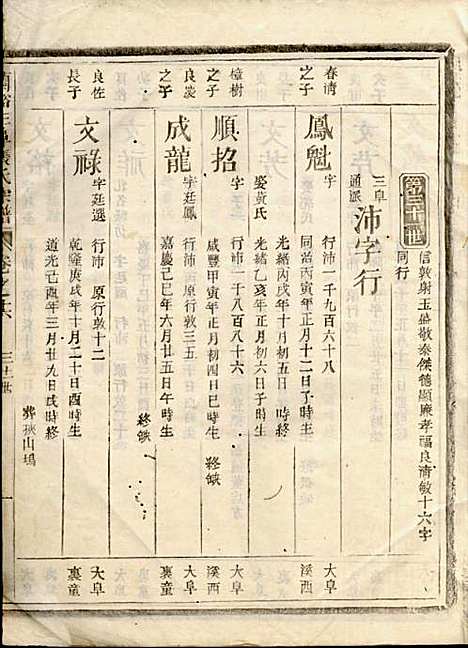 第三十世
信敦尉玉盛敬泰傑德顯廉孝福良濟敏十六字
同行
三阜
通派
沛字行
春濟
之子
鳳魁
字
行沛一千九百六十八
同治丙寅年正月十二日子時生
光緒丙戌年十月初五日時終
大阜
溪西
樟樹
之子
娶黃氏
光緒乙亥年正月初六日子時生
順招
字
行沛一千八百八十六
咸豐甲寅年正月初四日巳時生
終缺
大阜
溪西
良炭
之子
成龍
字廷鳳
行沛 原行敦三五
嘉慶己巳年六月廿五日午時生
終缺
大阜
裏童
良佐
長子
文祿
字廷選
行沛 原行敦十二
乾隆庚戌年十月二十日酉時生
道光己酉年三月廿九日戌時終
葬狄山塢
大阜
裏童
氏宗譜
卷之六
三十世